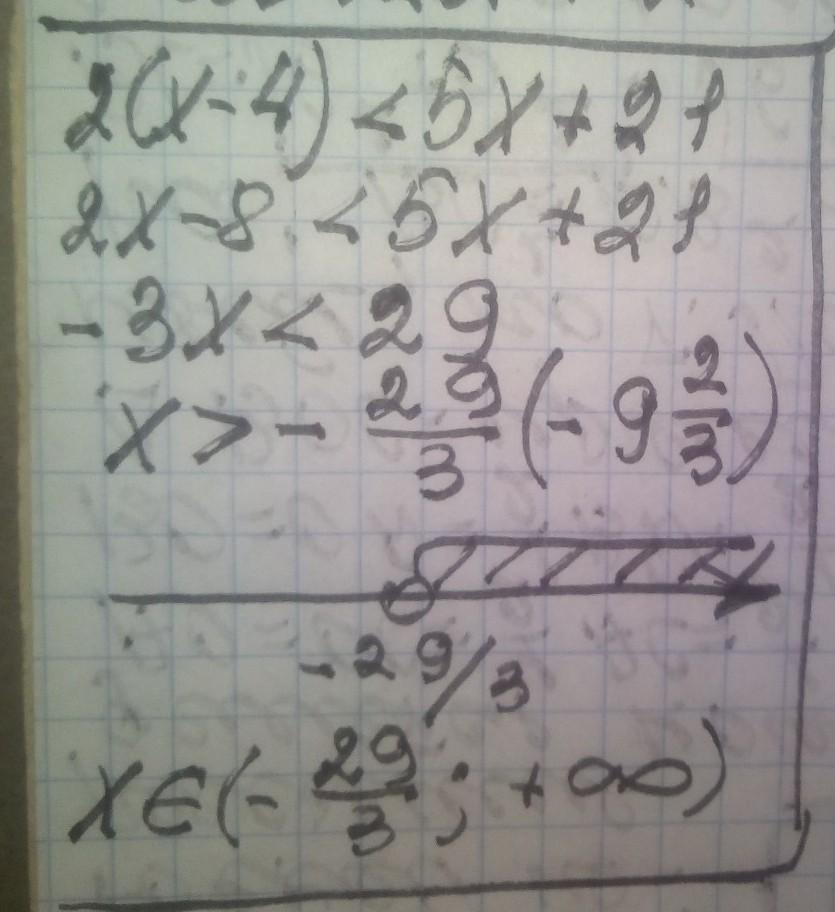 2(x-4) < 5x + 21
2x - 8 < 5x + 21
-3x < 29
x > - 29/3 (- 9 2/3)
- 29/3
x ∈ (- 29/3 ; + ∞)